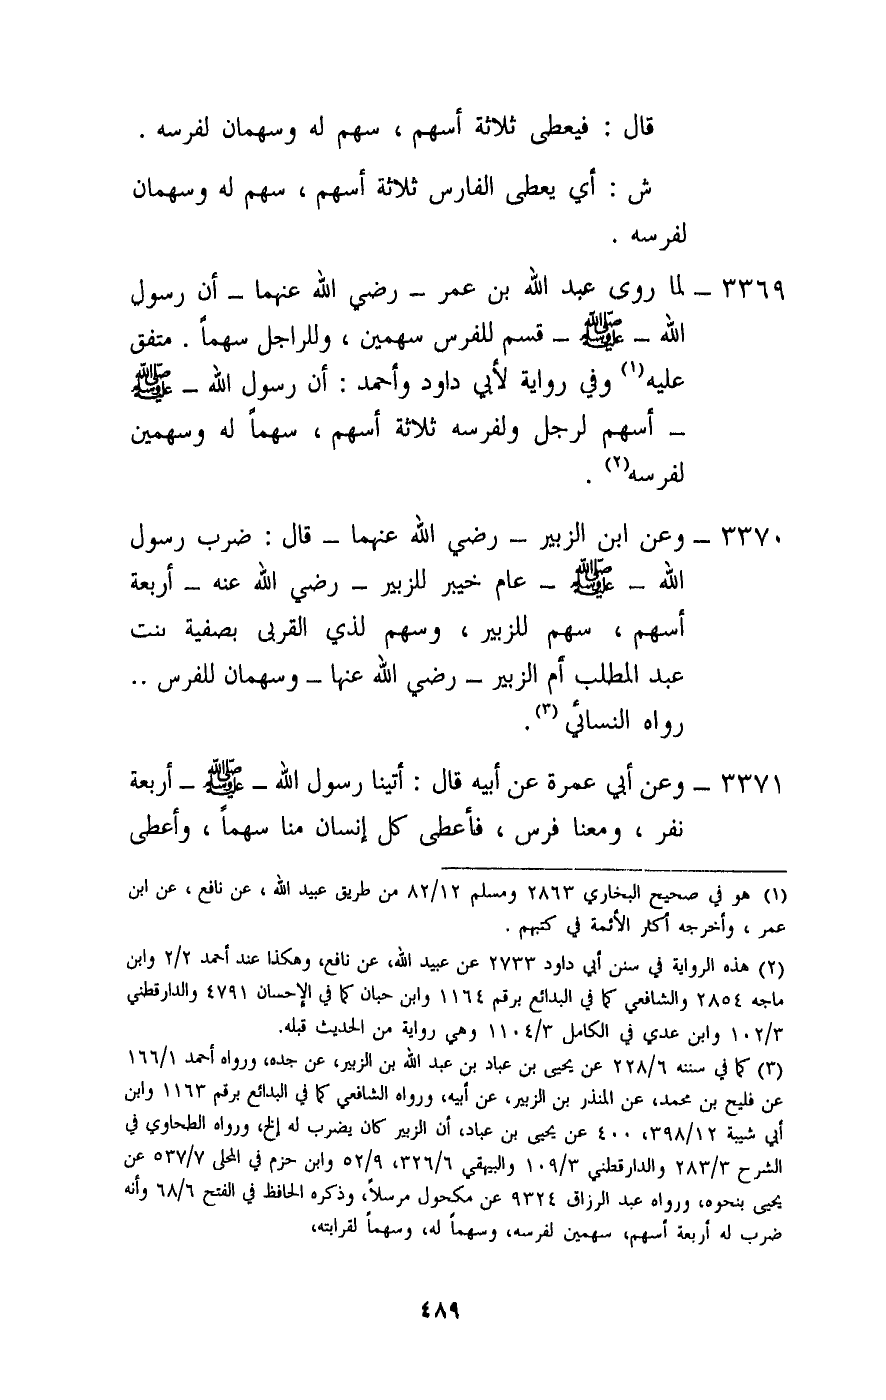 قال : فيعطى ثلاثة أسهم ، سهم له وسهمان لفرسه .
ش : أي يعطى الفارس ثلاثة أسهم ، سهم له وسهمان
لفرسه .
٣٣٦٩ – لما روى عبد الله بن عمر – رضي الله عنهما – أن رسول
الله – ﷺ – قسم للفرس سهمين ، وللراجل سهماً . متفق
عليه(١) وفي رواية لأبي داود وأحمد : أن رسول الله – ﷺ
– أسهم لرجل ولفرسه ثلاثة أسهم ، سهماً له وسهمين
لفرسه(٢) .
٣٣٧٠ – وعن ابن الزبير – رضي الله عنهما – قال : ضرب رسول
الله – ﷺ – عام خيبر للزبير – رضي الله عنه – أربعة
أسهم ، سهم للزبير ، وسهم لذي القربى بصفية بنت
عبد المطلب أم الزبير – رضي الله عنها – وسهمان للفرس ..
رواه النسائي(٣) .
٣٣٧١ – وعن أبي عمرة عن أبيه قال : أتينا رسول الله – ﷺ – أربعة
نفر ، ومعنا فرس ، فأعطى كل إنسان منا سهماً ، وأعطى
(١) هو في صحيح البخاري ٢٨٦٣ ومسلم ٨٢/١٢ من طريق عبيد الله ، عن نافع ، عن ابن
عمر ، وأخرجه أكثر الأئمة في كتبهم .
(٢) هذه الرواية في سنن أبي داود ٢٧٣٣ عن عبيد الله، عن نافع، وهكذا عند أحمد ٢/٢ وابن
ماجه ٢٨٥٤ والشافعي كما في البدائع برقم ١١٦٤ وابن حبان كما في الإحسان ٤٧٩١ والدارقطني
١٠٢/٣ وابن عدي في الكامل ١١٠٤/٣ وهي رواية من الحديث قبله.
(٣) كما في سننه ٢٢٨/٦ عن يحيى بن عباد بن عبد الله بن الزبير، عن جده، ورواه أحمد ١٦٦/١
عن فليح بن محمد، عن المنذر بن الزبير، عن أبيه، ورواه الشافعي كما في البدائع برقم ١١٦٣ وابن
أبي شيبة ٣٩٨/١٢، ٤٠٠ عن يحيى بن عباد، أن الزبير كان يضرب له إلخ، ورواه الطحاوي في
الشرح ٢٨٣/٣ والدارقطني ١٠٩/٣ والبيهقي ٣٢٦/٦، ٥٢/٩ وابن حزم في المحلى ٥٣٧/٧ عن
يحيى بنحوه، ورواه عبد الرزاق ٩٣٢٤ عن مكحول مرسلاً، وذكره الحافظ في الفتح ٦٨/٦ وأنه
ضرب له أربعة أسهم، سهمين لفرسه، وسهماً له، وسهماً لقرابته،
٤٨٩